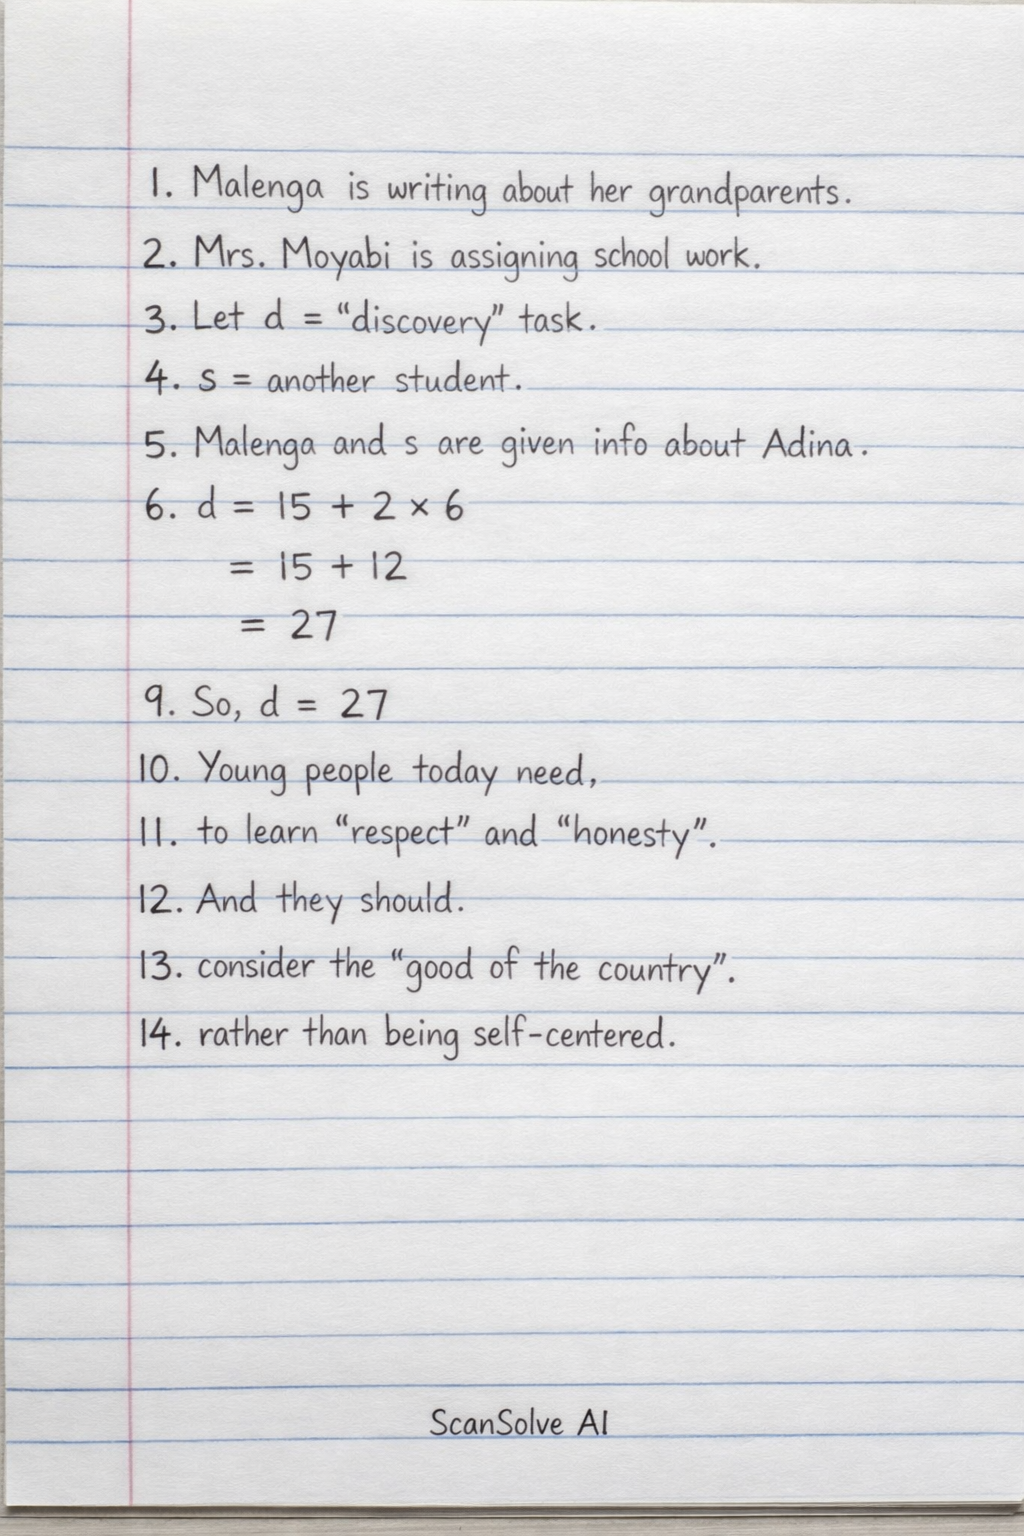 1. Malenga is writing about her grandparents.
2. Mrs. Moyabi is assigning school work.
3. Let d = “discovery” task.
4. s = another student.
5. Malenga and s are given info about Adina.
6. d = 15 + 2 × 6
= 15 + 12
= 27
9. So, d = 27
10. Young people today need,
11. to learn “respect” and “honesty”.
12. And they should.
13. consider the “good of the country”.
14. rather than being self-centered.
ScanSolve AI